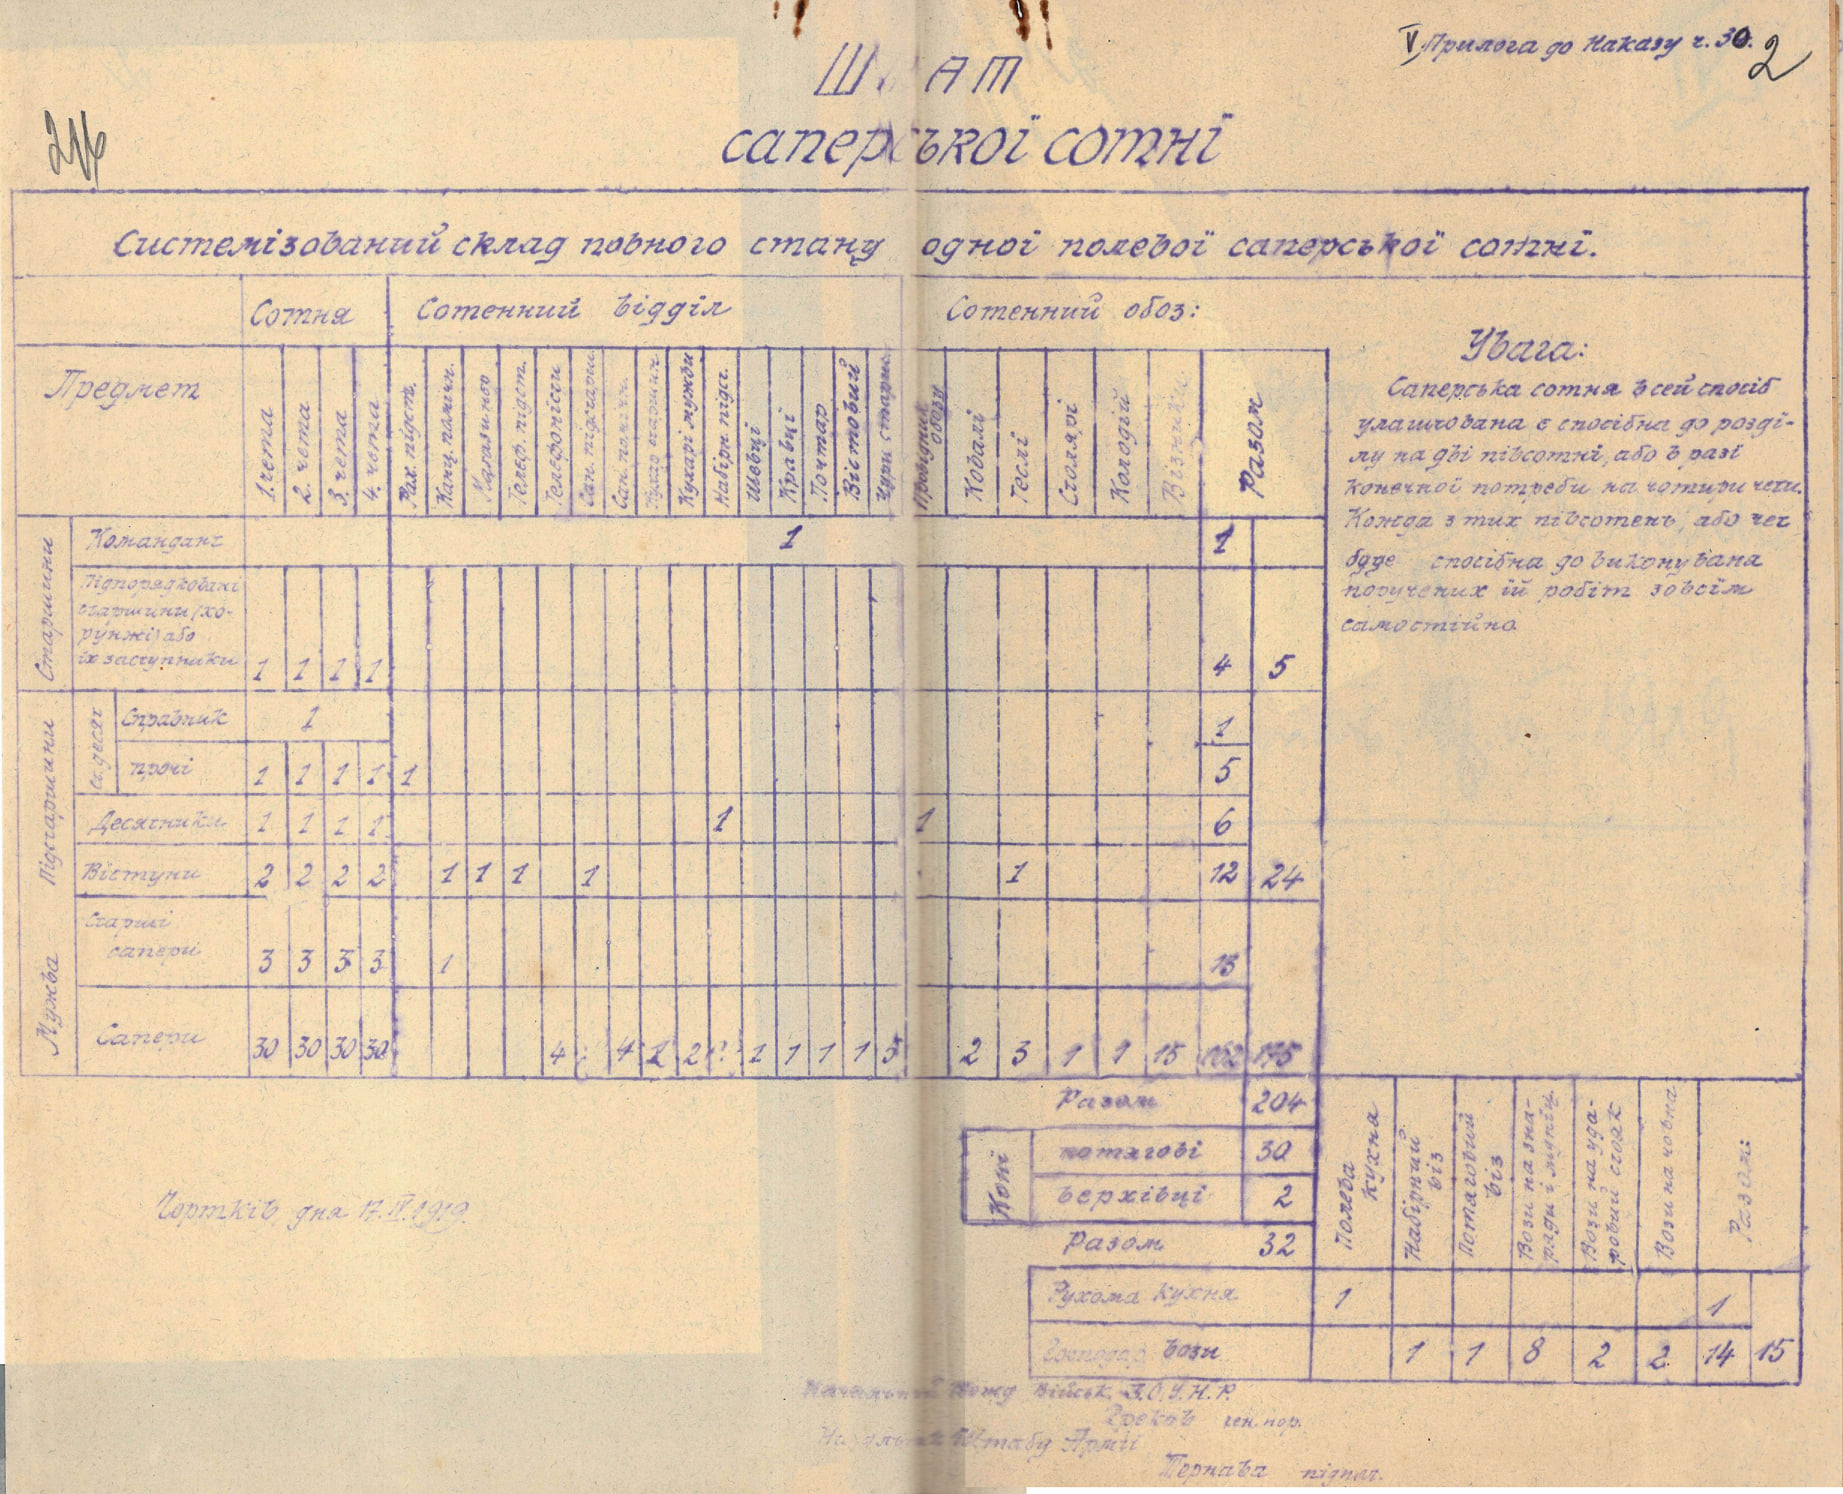 V Прилога до Наказу ч. 30.
2
216
ШТАТ
саперської сотні
Системізований склад повного стану одної полевої саперської сотні.
Сотня
Сотенний відділ
Сотенний обоз:
Предмет
1. чета
2. чета
3. чета
4. чета
Рах. підст.
Канц. поміч.
Магазинов
Телеф. підст.
Телефоністи
Сан. підстарш.
Сан. поміч.
Кухарі мужви
Набірн. підс.
Шевці
Кравці
Почтар
Вістовий
Чури старш.
Провідник обозу
Ковалі
Теслі
Столярі
Колодій
Візники
Разом
Увага:
Саперська сотня в сей спосіб
улаштована є спосібна до розді-
лу на дві півсотні, або в разі
конечної потреби на чотири чети.
Кожда з тих півсотень, або чет
буде спосібна до виконування
поручених їй робіт зовсім
самостійно.
Старшини
Командант 1 1
Підпорядковані
старшини (хо-
рунжі) або
їх заступники 1 1 1 1 4 5
Підстаршини
Ст. десят.
Справник 1 1
прочі 1 1 1 1 1 5
Десятники 1 1 1 1 1 1 6
Вістуни 2 2 2 2 1 1 1 1 1 12 24
Мужва
Старші
сапери 3 3 3 3 1 13
Сапери 30 30 30 30 4 4 1 2 2 1 1 1 1 5 2 3 1 1 15 162 175
Разом 204
Коні
потягові 30
верхівці 2
Разом 32
Полева кухня
Набірний віз
Потяговий віз
Вози на зна-
ряди і муніц.
Вози на уда-
ровий стояк
Вози на човна
Разом:
Рухома кухня 1 1
Господар. вози 1 1 8 2 2 14 15
Чортків, дня 17.IV.1919.
Начальний Вожд Військ З.О.У.Н.Р.
Греков ген. пор.
Начальник Штабу Армії
Тернава підполк.